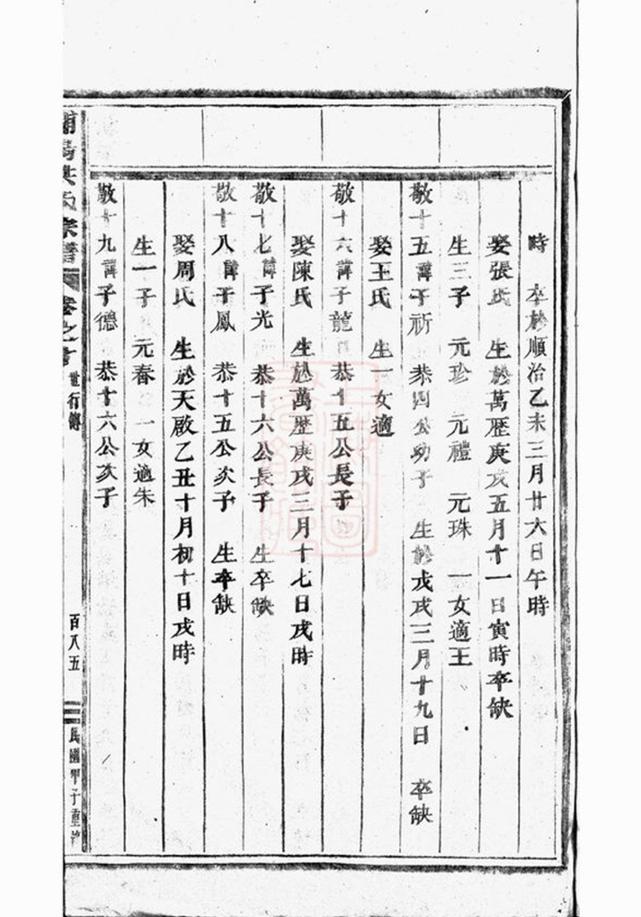 時 卒於順治乙未三月廿六日午時
娶張氏 生於萬歷庚戌五月十一日寅時卒缺
生三子 元珍 元禮 元珠 一女適王
敬十五諱子祈 恭四公幼子 生於戊戌三月十九日 卒缺
娶王氏 生一女適
敬十六諱子龍 恭十五公長子
娶陳氏 生於萬歷庚戌三月十七日戌時
敬十七諱子光 恭十六公長子 生卒缺
敬十八諱子鳳 恭十五公次子 生卒缺
娶周氏 生於天啟乙丑十月初十日戌時
生一子 元春 一女適朱
敬十九諱子德 恭十六公次子
洪氏宗譜 卷之 世行傳 百八五 民國甲子重